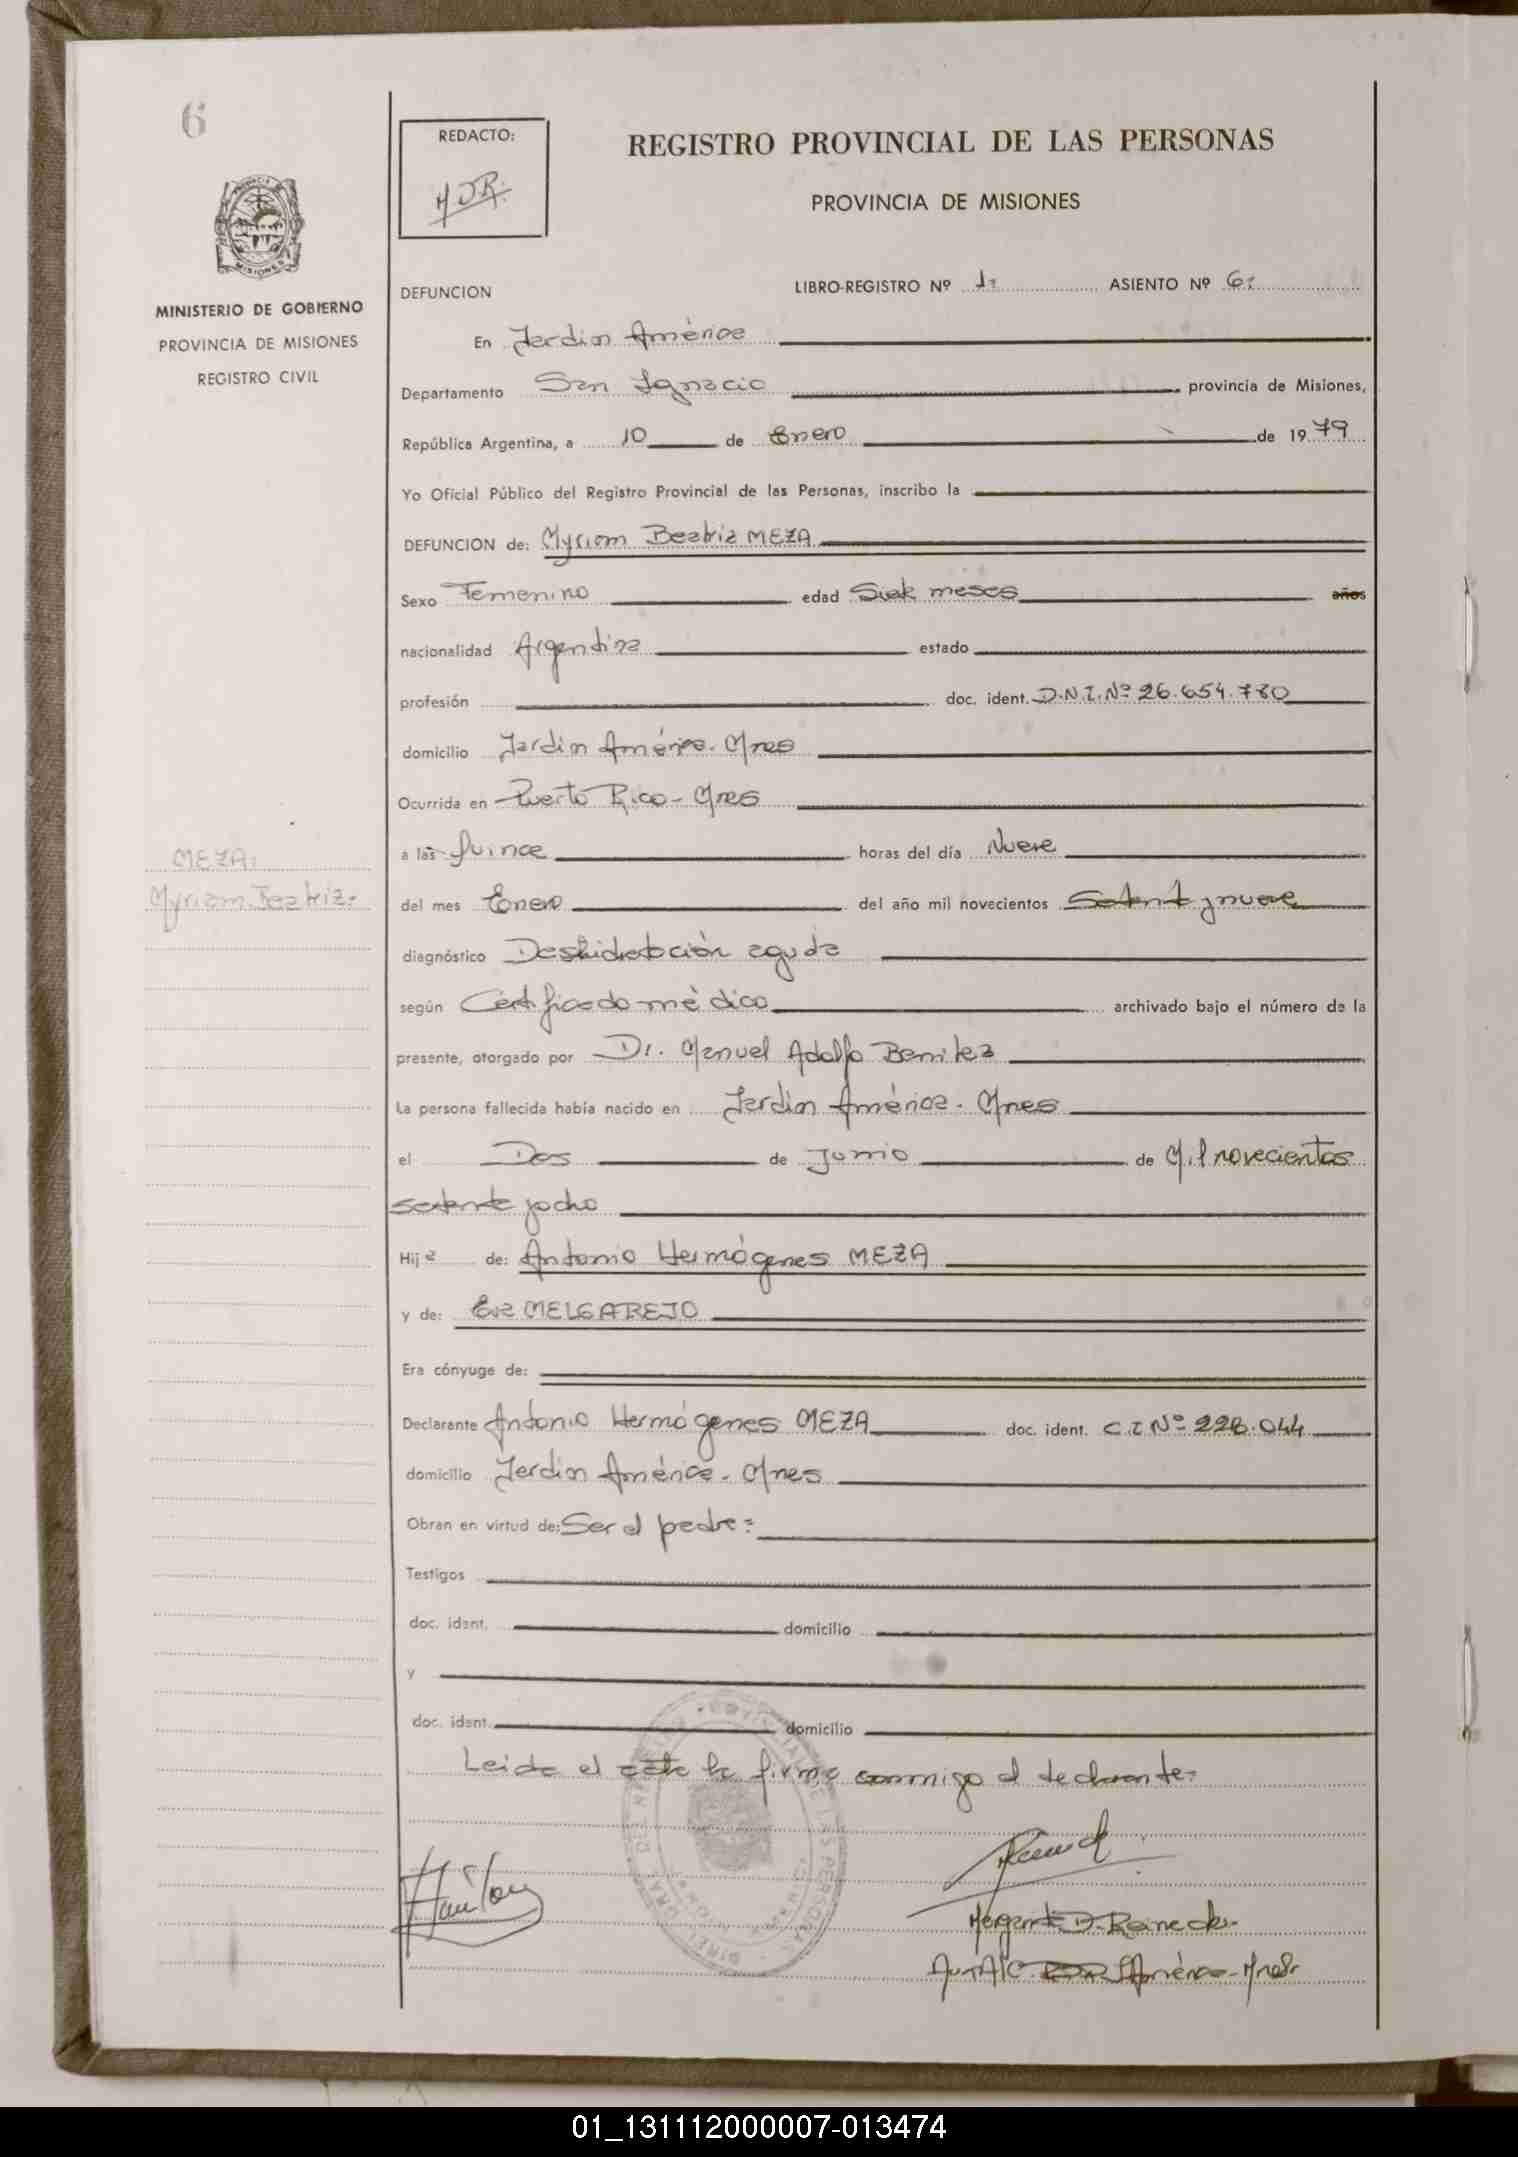 6
REDACTO:
REGISTRO PROVINCIAL DE LAS PERSONAS
PROVINCIA DE MISIONES
MINISTERIO DE GOBIERNO
PROVINCIA DE MISIONES
REGISTRO CIVIL
DEFUNCION LIBRO-REGISTRO Nº 1= ASIENTO Nº 6=
En Jardin América
Departamento San Ignacio provincia de Misiones,
República Argentina, a 10 de Enero de 1979
Yo Oficial Público del Registro Provincial de las Personas, inscribo la
DEFUNCION de: Myriam Beatriz MEZA
Sexo Femenino edad Siete meses años
nacionalidad Argentina estado
profesión doc. ident. D.N.I. Nº 26.654.780
domicilio Jardin América - Mnes
Ocurrida en Puerto Rico - Mnes
a las quince horas del día Nueve
MEZA=
Myriam Beatriz=
del mes Enero del año mil novecientos Setenta y nueve
diagnóstico Deshidratación aguda
según Certificado médico archivado bajo el número de la
presente, otorgado por Dr. Manuel Adolfo Benitez
La persona fallecida había nacido en Jardin América - Mnes
el Dos de Junio de Mil novecientos
setenta y ocho
Hija de: Antonio Hermógenes MEZA
y de: Eva MELGAREJO
Era cónyuge de:
Declarante Antonio Hermógenes MEZA doc. ident. C.I Nº 226.044
domicilio Jardin América - Mnes
Obran en virtud de: Ser el padre=
Testigos
doc. ident. domicilio
y
doc. ident. domicilio
Leida el acta la firma conmigo el declarante=
América - Mnes
01_131112000007-013474